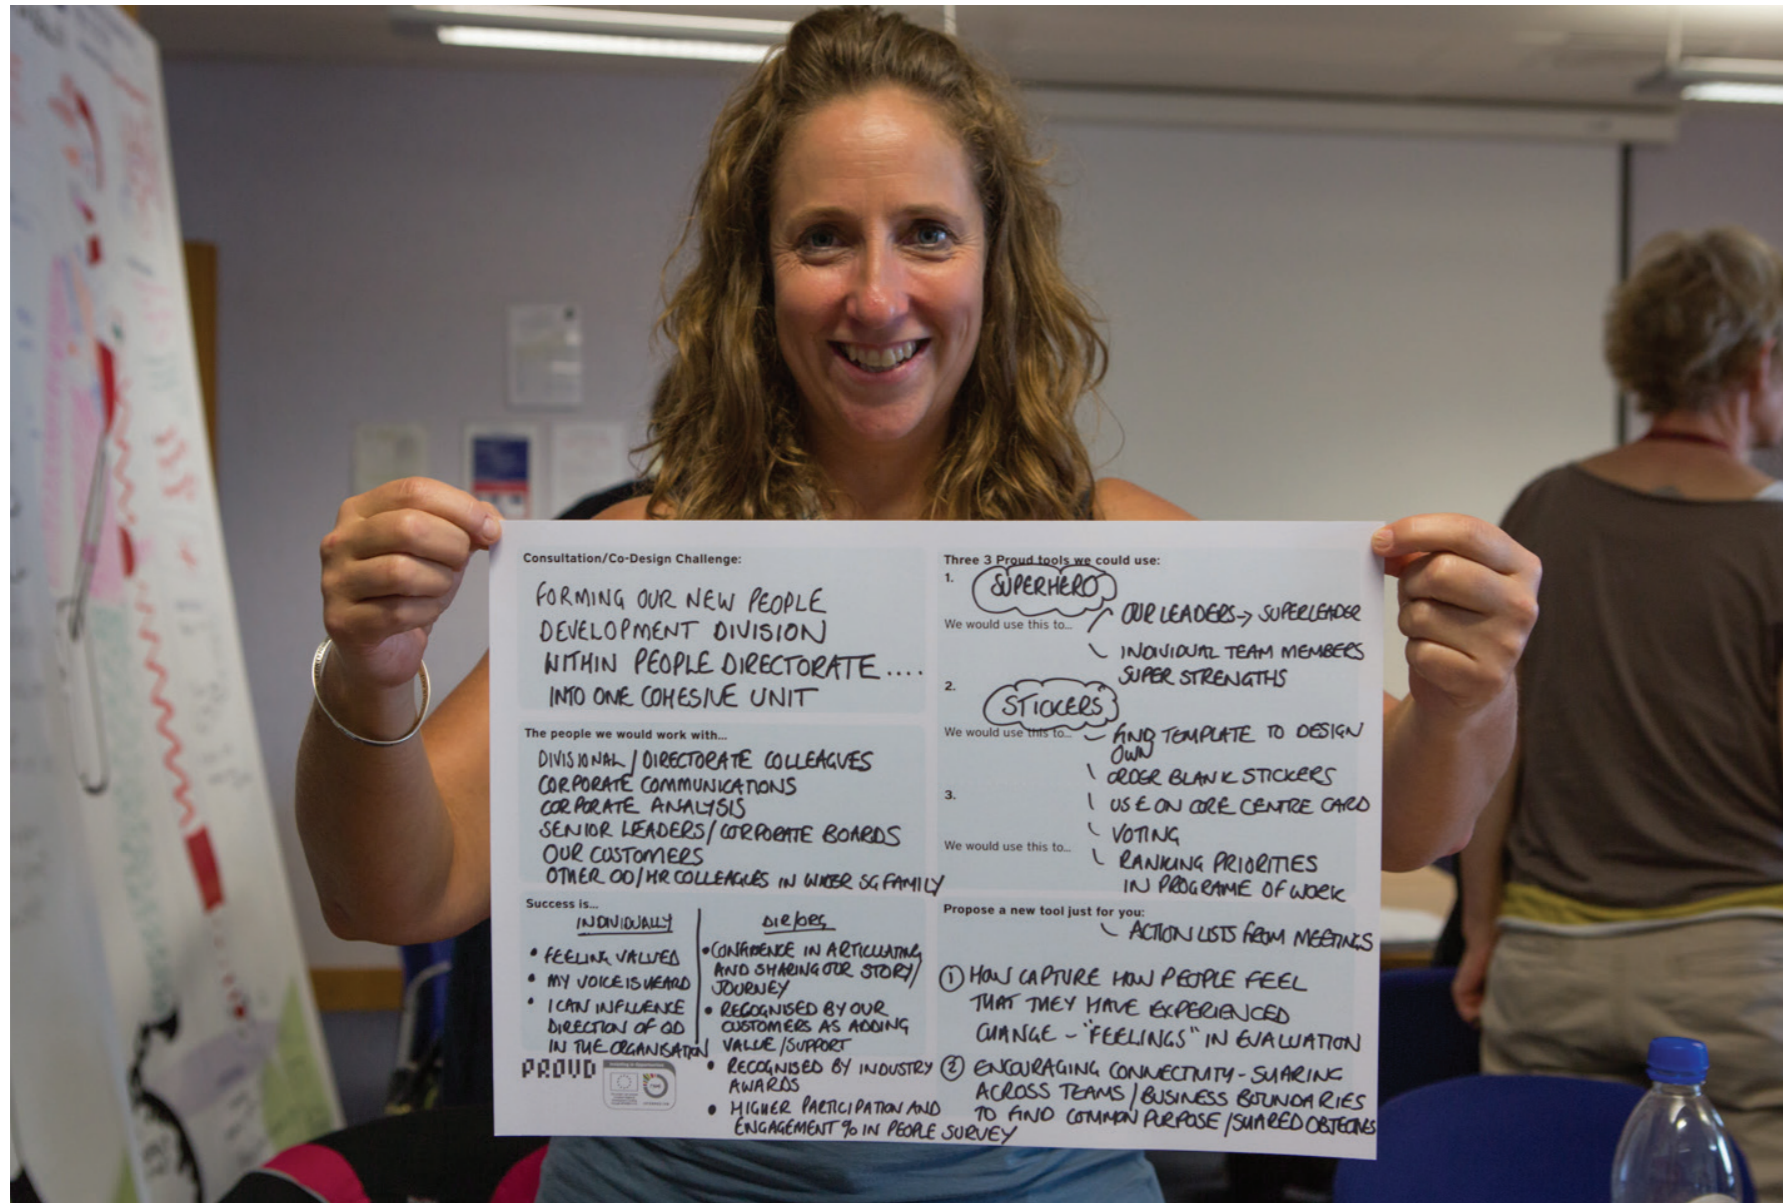 Consultation/Co-Design Challenge:
FORMING OUR NEW PEOPLE
DEVELOPMENT DIVISION
WITHIN PEOPLE DIRECTORATE ....
INTO ONE COHESIVE UNIT
The people we would work with...
DIVISIONAL / DIRECTORATE COLLEAGUES
CORPORATE COMMUNICATIONS
CORPORATE ANALYSIS
SENIOR LEADERS / CORPORATE BOARDS
OUR CUSTOMERS
OTHER OD/HR COLLEAGUES IN WIDER SG FAMILY
Success is...
INDIVIDUALLY
• FEELING VALUED
• MY VOICE IS HEARD
• I CAN INFLUENCE
DIRECTION OF OD
IN THE ORGANISATION
DIR/ORG
• CONFIDENCE IN ARTICULATING
AND SHARING OUR STORY/
JOURNEY
• RECOGNISED BY OUR
CUSTOMERS AS ADDING
VALUE / SUPPORT
• RECOGNISED BY INDUSTRY
AWARDS
• HIGHER PARTICIPATION AND
ENGAGEMENT % IN PEOPLE SURVEY
PROUD
Three 3 Proud tools we could use:
1. SUPERHERO
We would use this to...
OUR LEADERS → SUPERLEADER
INDIVIDUAL TEAM MEMBERS
SUPER STRENGTHS
2. STICKERS
We would use this to...
FIND TEMPLATE TO DESIGN
OWN
ORDER BLANK STICKERS
3.
USE ON CORE CENTRE CARD
VOTING
We would use this to...
RANKING PRIORITIES
IN PROGRAME OF WORK
Propose a new tool just for you:
ACTION LISTS FROM MEETINGS
① HOW CAPTURE HOW PEOPLE FEEL
THAT THEY HAVE EXPERIENCED
CHANGE - "FEELINGS" IN EVALUATION
② ENCOURAGING CONNECTIVITY - SHARING
ACROSS TEAMS / BUSINESS BOUNDARIES
TO FIND COMMON PURPOSE / SHARED OBJECTIVES